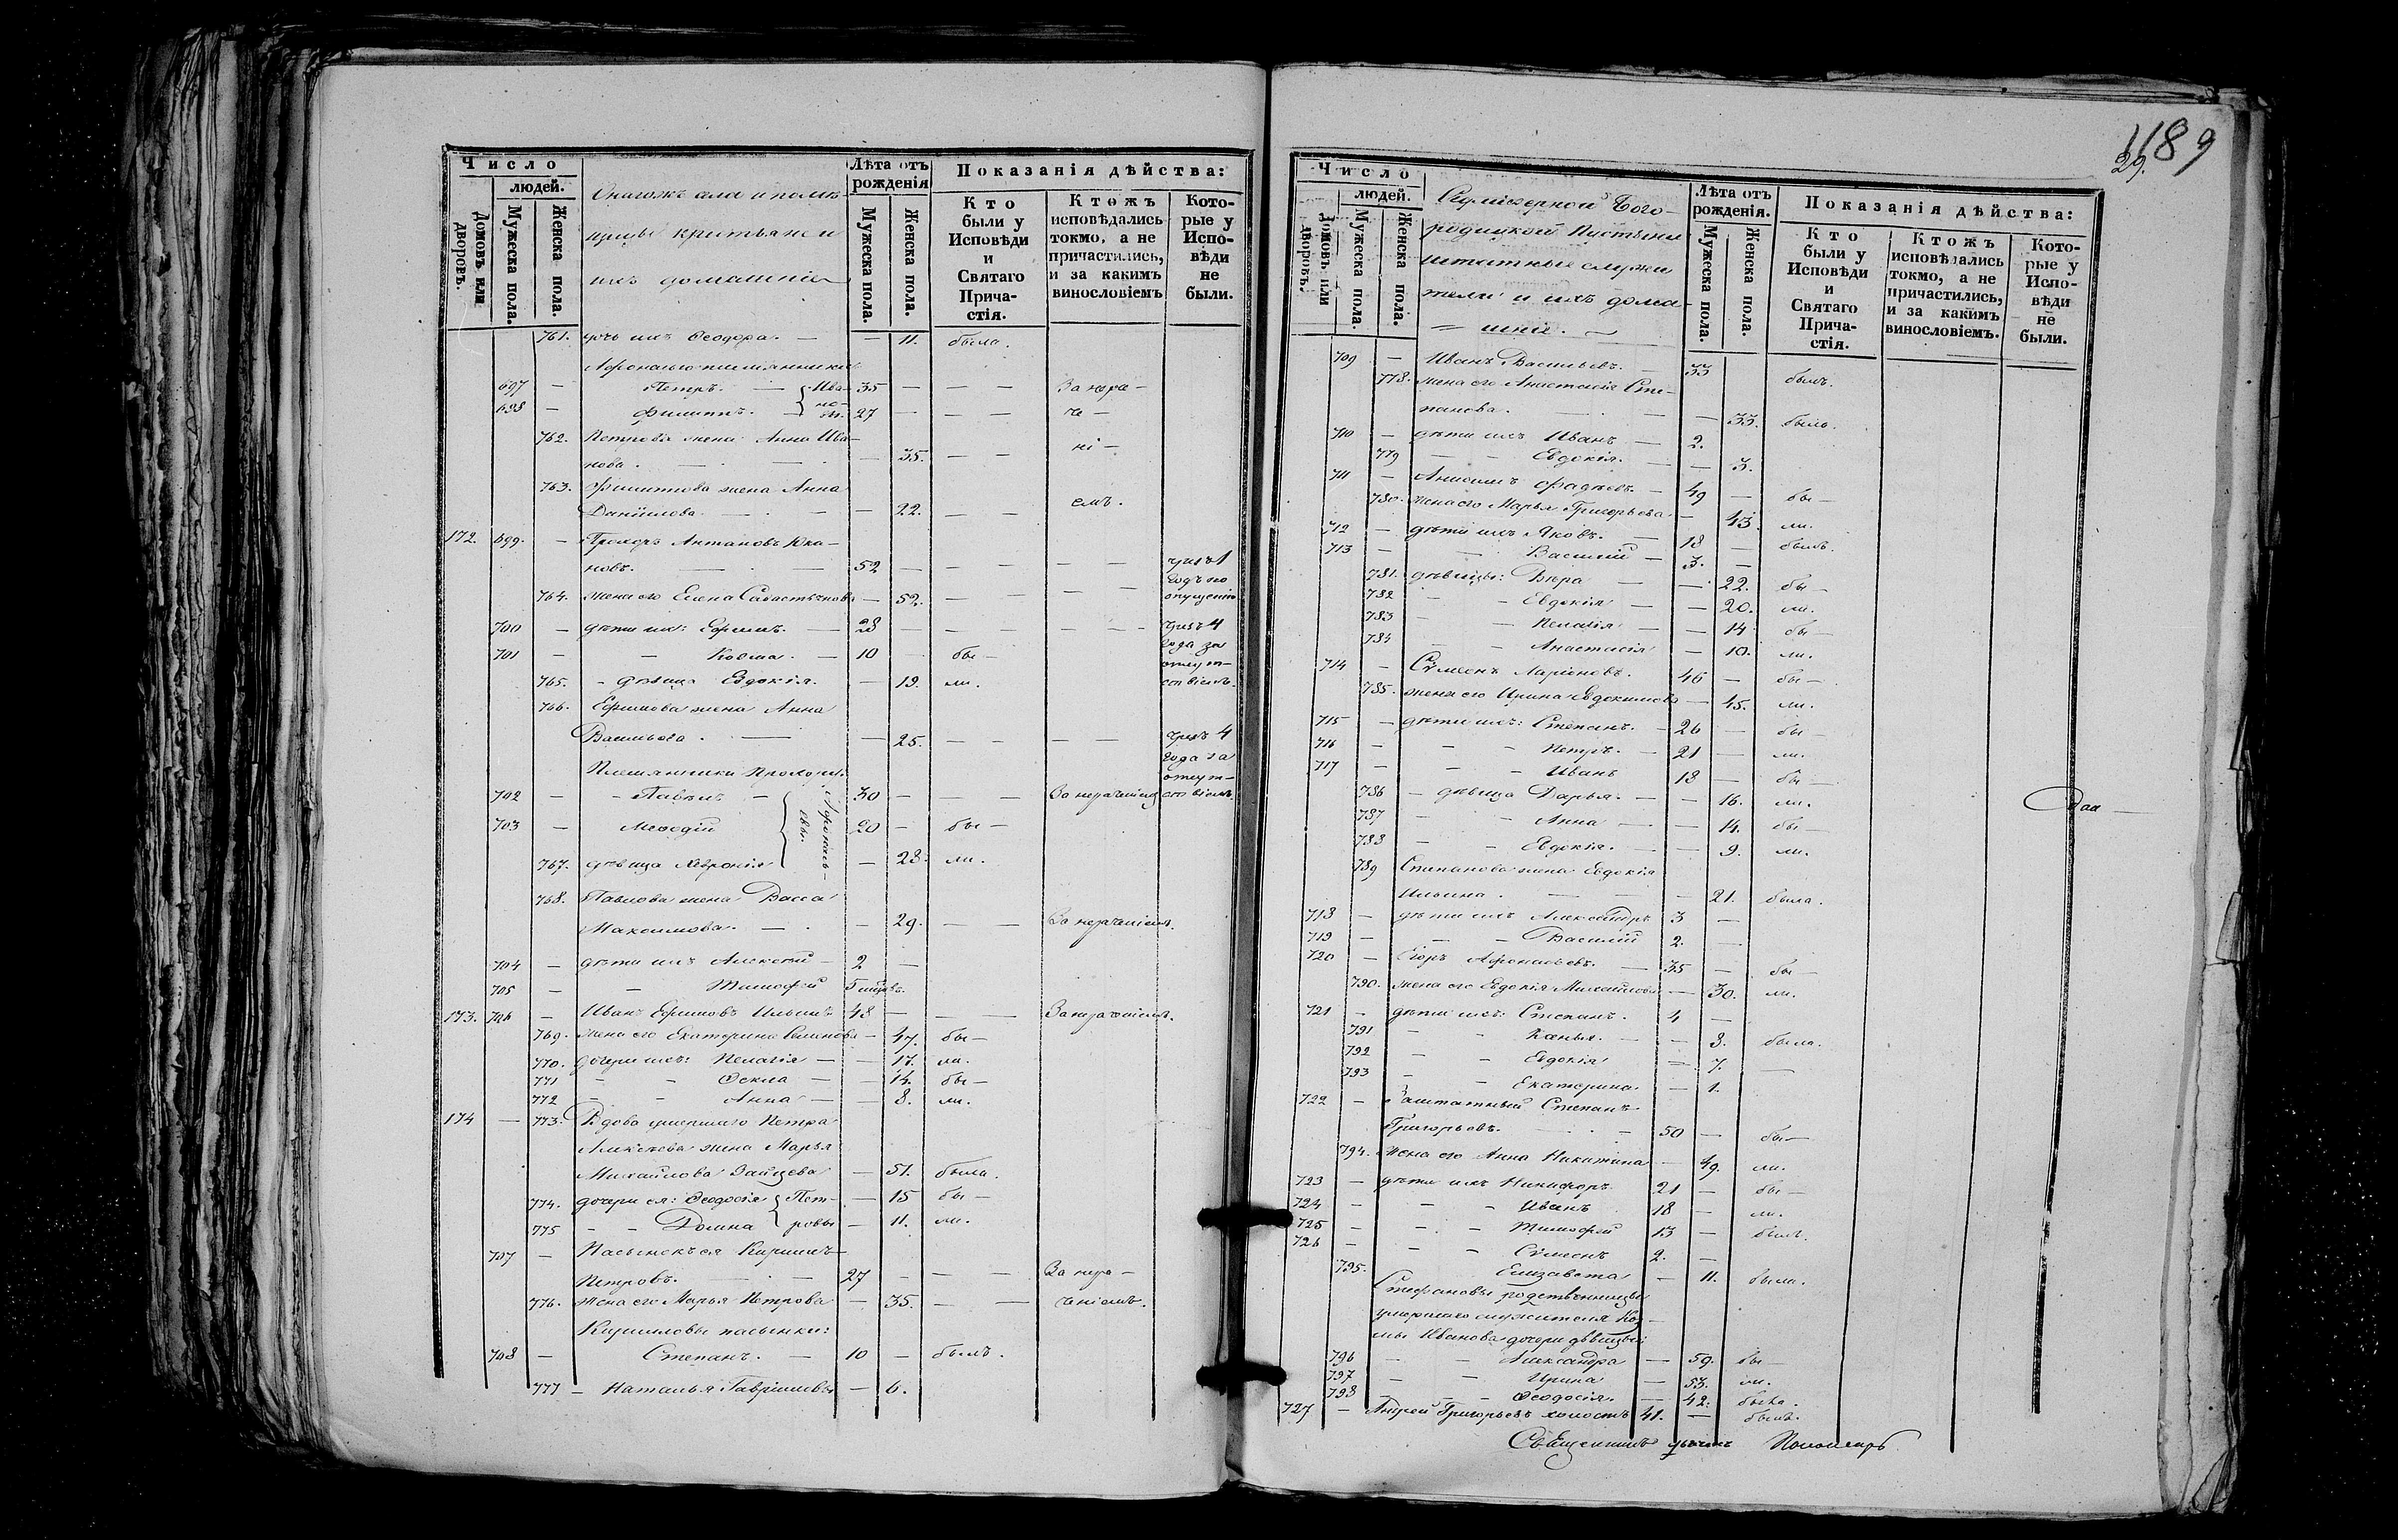 Число
людей.
Домовъ или дворовъ.
Мужеска пола.
Женска пола.
Онагожъ села и полов-
ицы крестьяне и
ихъ домашніе
Лѣта отъ рожденія
Мужеска пола.
Женска пола.
Показанія дѣйства:
Кто были у Исповѣди и Святаго Причастія.
Ктожъ исповѣдались токмо, а не причастились, и за какимъ винословіемъ
Которые у Исповѣди не были.
761. дочь ихъ Ѳеодора. — — 11. была.
Афонасьо племянники
697 — Петръ. — Ива- 35 — — — За нера-
698 — Филиппъ. — но- 27 — — — че-
762. Петрова жена Анна Ива-
нова. — — — 35. — — ні-
763. Филиппова жена Анна
Данилова. — — — 22. — — емъ.
172. 699. — Прохоръ Антановъ
новъ. — — 52 — — — — — чрезъ 1
годъ по
764. жена его Елена Савастьянова — 52. — — — — опущенію
700 — дѣти ихъ: Ефимъ. — 28 — — — — чрезъ 4
года за
701 — — Козма. — 10 — бы— отсут-
765. — дѣвица Евдокія. — 19. ли. ствіемъ.
766. Ефимова жена Анна
Васильева. — — 25. — — — — чрезъ 4
года за
Племянники Прохоровы отсут-
702 — — Павелъ — Афонась- 30 — — За нераченіемъ ствіемъ.
703 — Меѳодій евы. 20 — бы—
767. дѣвица Хевронія — 28. ли.
768. Павлова жена Васса
Максимова. — — 29. — — За нераченіемъ.
704 — дѣти ихъ Алексѣй — 2 —
705 — — Тимоѳей 5 мѣсяцъ.
173. 706 — Иванъ Ефимовъ Ильинъ 48 — — — За нераченіемъ.
769. жена его Екатерина — 47. бы—
770. дочери ихъ: Пелагія — — 17. ли.
771 — — Ѳекла — — 14. бы—
772 — — Анна — — 8. ли.
174 — 773. Вдова умершаго Петра
Алексѣева жена Марья
Михайлова Зайцева — 51. была.
774. дочери ея: Ѳеодосія Пет- — 15 бы—
775 — — Домна ровы — 11. ли.
707 — Пасынокъ ея Кирилъ
Петровъ. — — 27 — — — За нера-
776. жена его Марья Петрова — 35. — — ченіемъ.
Кириловы пасынки:
708 — Степанъ. — 10 — былъ.
777 — Наталья Гавриловы — 6.
189
29.
Число
людей.
Домовъ или дворовъ.
Мужеска пола.
Женска пола.
Седміезерной Бого-
родицкой Пустыни
штатные служи
тели и ихъ дома-
= шніе. —
Лѣта отъ рожденія.
Мужеска пола.
Женска пола.
Показанія дѣйства:
Кто были у Исповѣди и Святаго Причастія.
Ктожъ исповѣдались токмо, а не причастились, и за какимъ винословіемъ.
Которые у Исповѣди не были.
709 — Иванъ Васильевъ. — 33 былъ.
778. жена его Анастасія Сте-
панова. — — — 33. была.
710 — дѣти ихъ Иванъ — 2.
779 — — Евдокія. — — 3.
711 — Анисимъ Фадѣевъ. — 49 — бы—
780. жена его Марья Григорьева — 43. ли.
712 — дѣти ихъ Яковъ. — 18 — былъ.
713 — — Василій — 3. —
781. дѣвицы: Вѣра — — 22. бы—
782 — — Евдокія — — 20. ли.
783 — — Пелагія — — 14 бы—
784 — — Анастасія — 10. ли.
714 — Сѵмеонъ Ларіоновъ. 46 — бы—
785. жена его Ирина Евдокимова — 45. ли.
715 — дѣти ихъ: Степанъ. — 26 — бы—
716 — — — Петръ. — 21 — ли.
717 — — — Иванъ 18 — бы—
786 — дѣвица Дарья. — — 16. ли.
787 — — Анна — — 14. бы—
788 — — Евдокія. — — 9. ли.
789 Степанова жена Евдокія
Ильина. — — — 21. была.
718 — дѣти ихъ Александръ 3 —
719 — — — Василій 2. —
720 — Егоръ Афонасьевъ. — 35 — бы—
790. жена его Евдокія Михайлова — 30. ли.
721 — дѣти ихъ: Степанъ. 4 —
791 — — — — 8. была.
792 — — Евдокія — 7. —
793 — — Екатерина. — 1.
722 — Заштатный Степанъ
Григорьевъ. — — 50 — бы—
794. жена его Анна Никитина — 49. ли.
723 — дѣти ихъ Никифоръ 21 — бы—
724 — — — Иванъ 18 — ли.
725 — — — Тимоѳей 13 — былъ.
726 — — — Сѵмеонъ 2. —
795. Елизавета — 11. была.
Стефановы родственницы
умершаго служителя Коз-
мы Иванова дочери дѣвицы:
796 — — Александра — 59. бы
797 — — Ирина — 53. ли.
798 — — Ѳеодосія. — 42. была.
727 — Андрей Григорьевъ холостъ 41. — былъ.
Священникъ Пономаръ